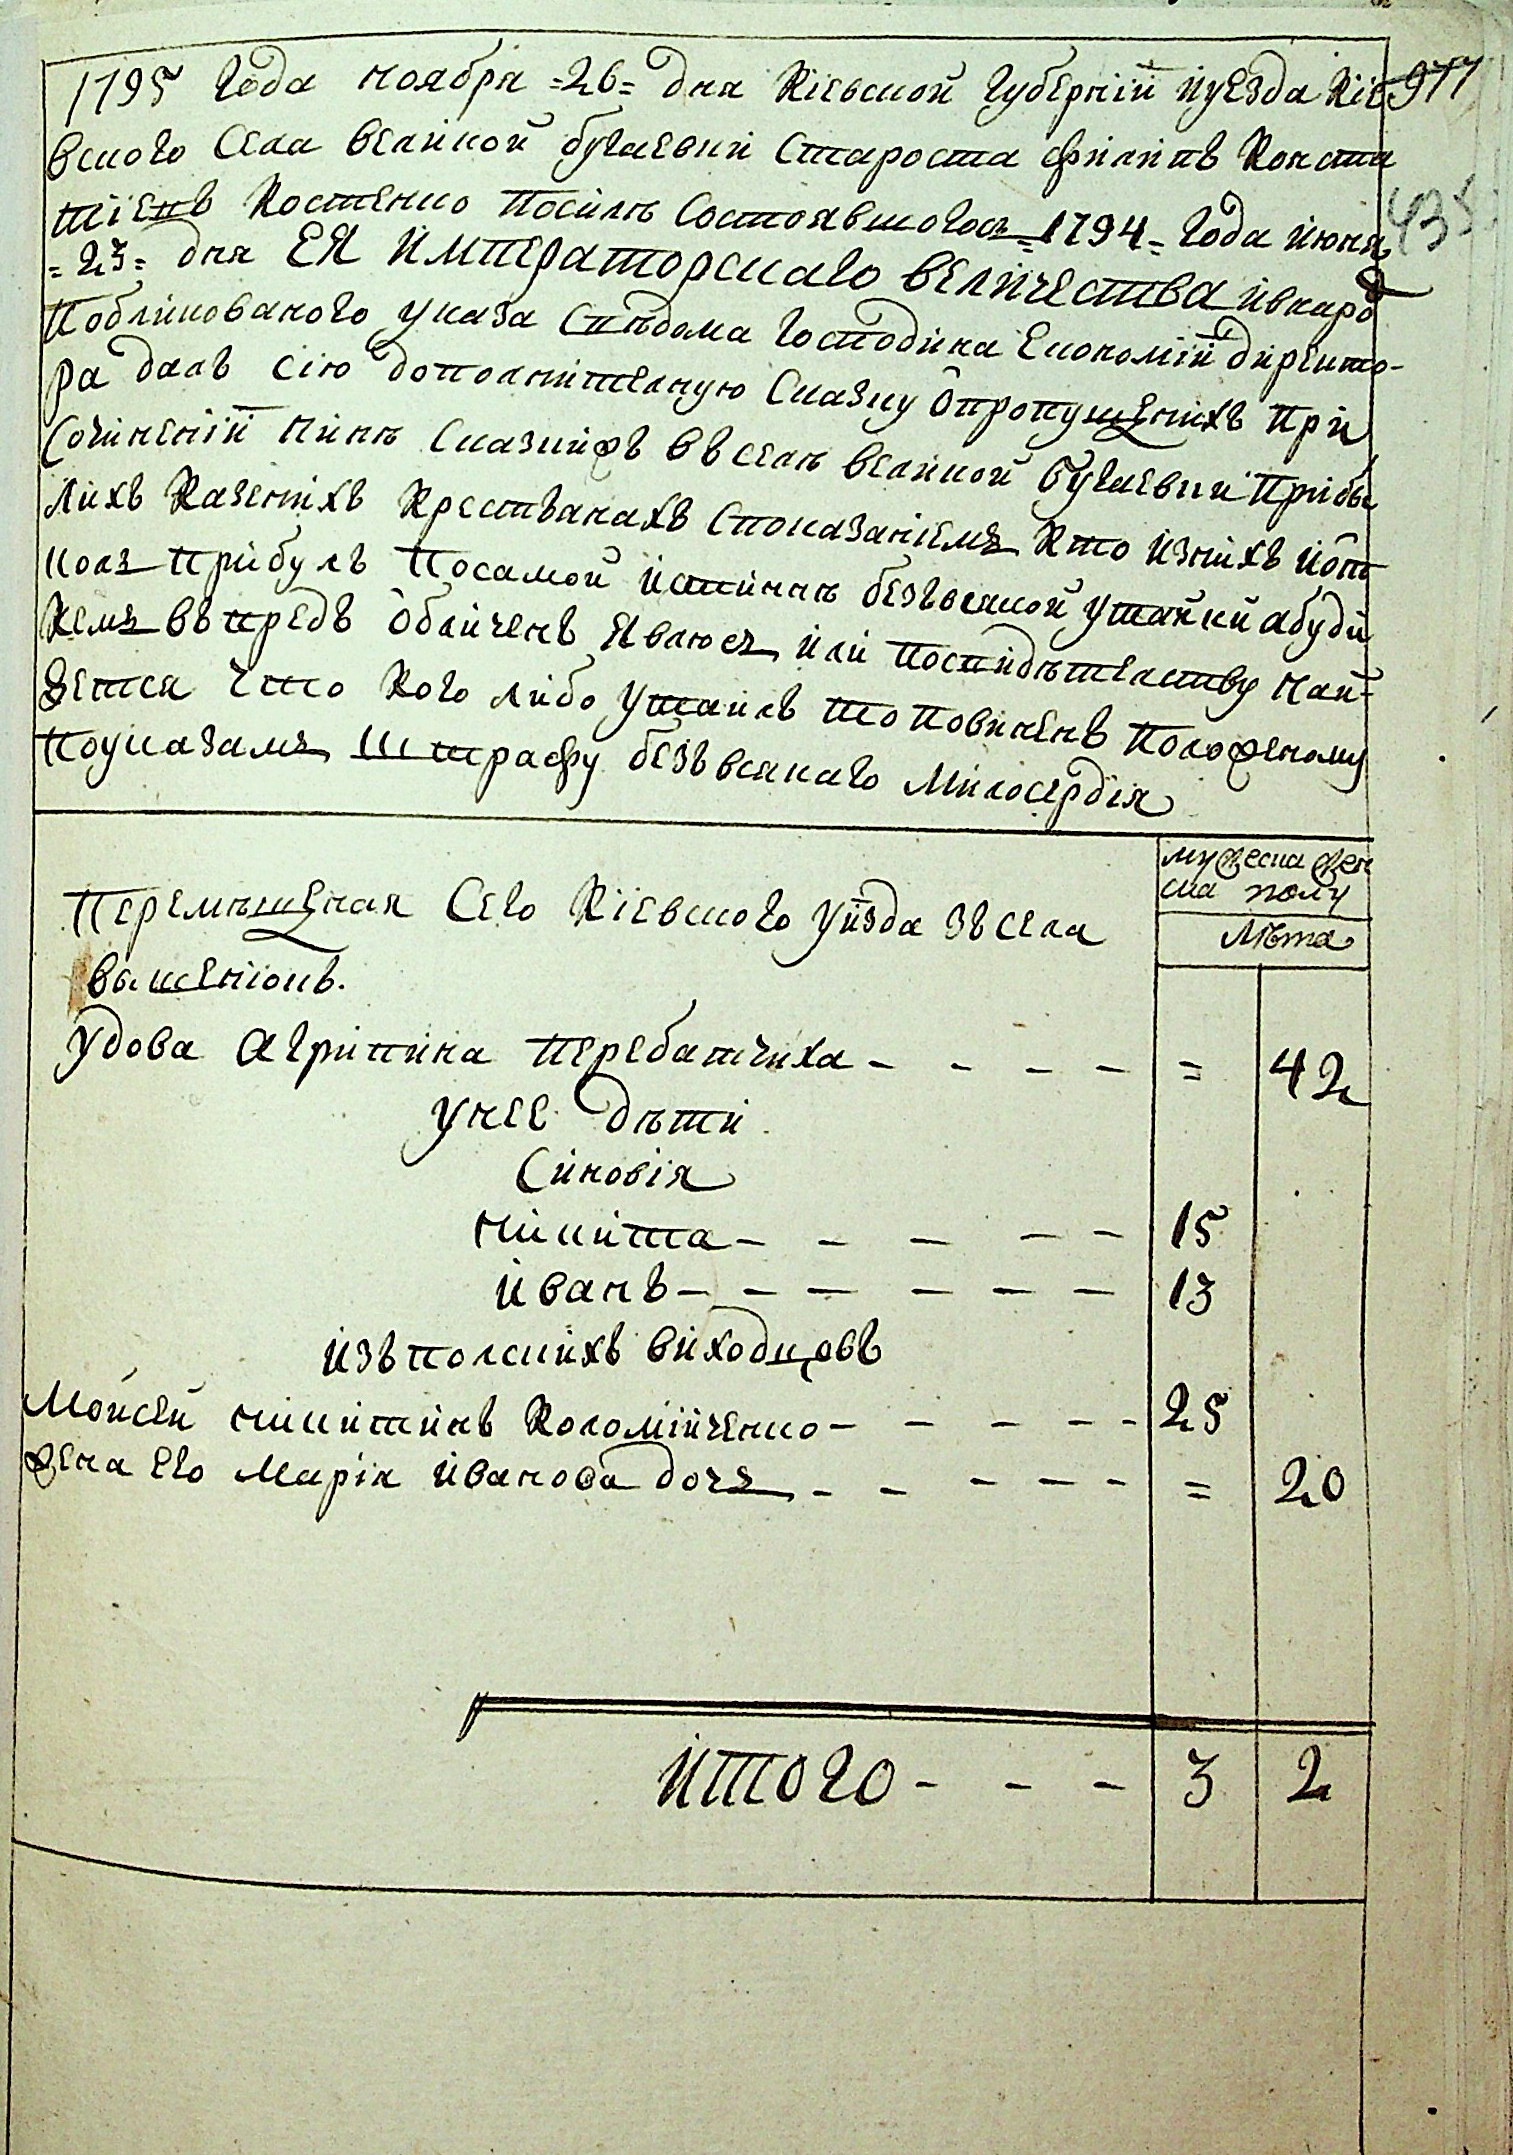 1795 года ноября =26= дня Кіевской губерніи иуезда Кіе 977
вского села великой бугаевки староста филипъ Конста
тіевъ Костенко посилѣ состоявшогось =1794= года июня 435
=23= дня ЕЯ ИМПЕРАТОРСКАГО ВЕЛИЧЕСТВА ивнарод
побликованого указа свѣдома господина економіи директо-
ра далъ сію дополнителную сказку опропущенихъ при
сочиненіи нинѣ сказкиже въ селѣ великой бугаевки прибы
лихъ казенихъ крестянахъ споказаніемъ кто изнихъ и от
коль прибулъ посамой истиннѣ безъвсякой утайки абуди
кемъ въпредъ обличенъ явлюсь или посвидѣтелству най=
детса что кого либо утаилъ то повиненъ положеному
поуказамъ штрафу безъвсякаго милосердія
мужеска жен
ска полу
Лѣта
Перемѣщеная сего Кіевского уизда зъ села
Удова агрипина перебатчиха - - - - = 42
унее дѣти
Синовія
никита - - - - - 15
иванъ - - - - - - 13
изъ полскихъ виходцовъ
Мойсей никитинъ Коломійченко - - - - - 25
жена его марія иванова дочь - - - - - = 20
итого - - - 3 2